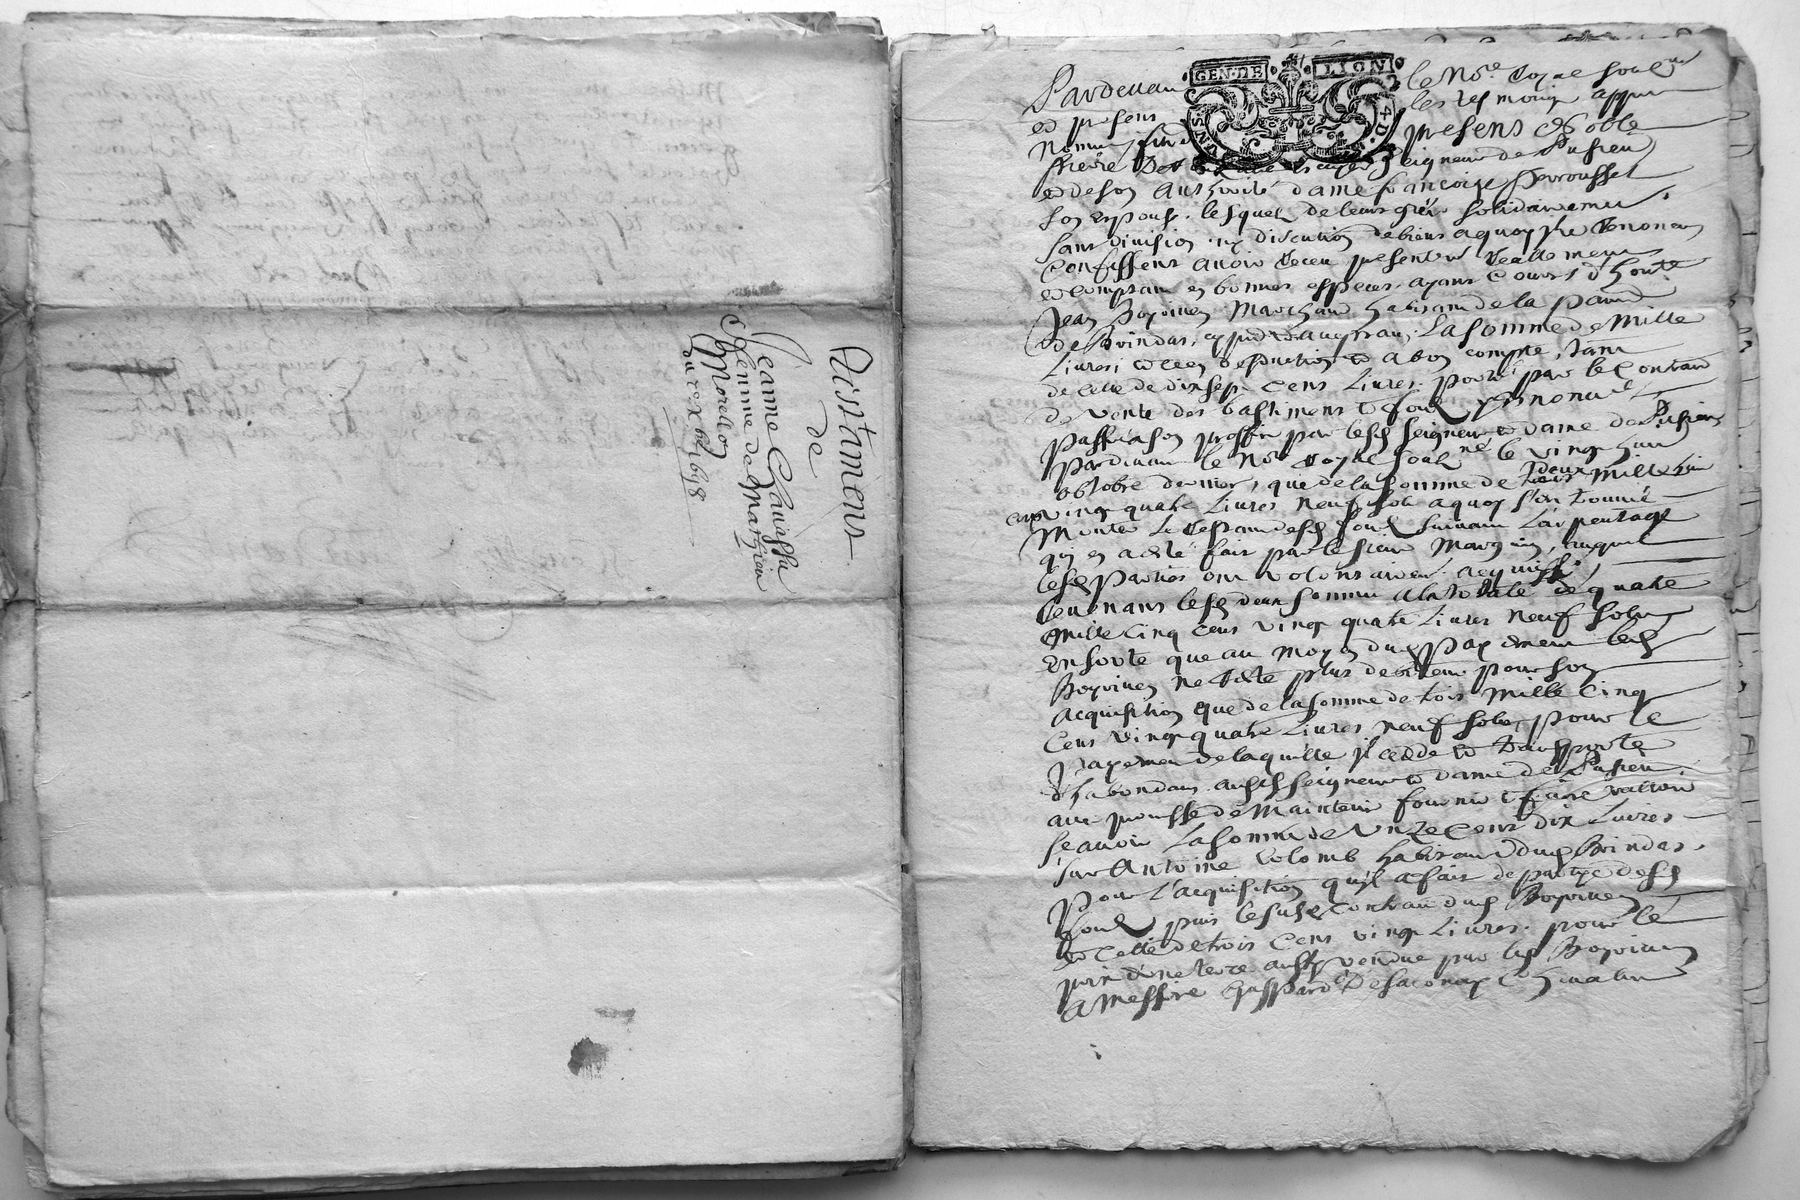 Testament
de
Jeanne Chavassu
femme de Martieu
Morellon
du 10 xbre 1698
GEN.DE LION
Pardevant le Nore Royal soub.né
et presens les tesmoins appres
nommes presens Noble
seigneur de Pusieu
et de son authorité dame francoise Perrousset
son espouse, lesquels de leurs grés solidairement
sans division ny discution de biens a quoy ils renoncent
Confessent avoir receu presentem.t reallement
et comptant en bonnes especes ayant cours, d'honte
Jean Boyrivent Marchand habitant de la paroisse
de Brindas, cy present acceptant, La somme de Mille
Livres, et ce en deduction et a bon compte, tant
de celle de dix sept cens Livres porté par le Contract
de vente des bastimens et fonds
passé a son proffit par lesd seigneur et dame de Pusieu
pardevant le Nore Royal soub.né le vingt huit
octobre dernier, que de la somme de deux mille huit
cens vingt quatre Livres neuf sols a quoy s'est trouvé
Monter le restant desd fonds suivant L'arpentage
qui en a esté fait par le sieur Marguin, auquel
lesd Parties ont volontairem.t acquiessé,
revenans lesd deux sommes a la totale de quatre
Mille Cinq cens vingt quatre Livres neuf sols
En sorte que au moyen dud payement led
Boyrivent ne reste plus debiteur pour son
acquisition que de la somme de trois Mille Cinq
Cens vingt quatre Livres neuf sols, pour le
payement de laquelle il cedde et transporte
d'habondant ausd seigneur et dame de Pusieu
avec promesse de Maintenir fournir et faire valloir
scavoir La somme de Unze Cens dix Livres
sur Antoine Colomb habitant dud Brindas,
pour L'acquisition qu'il a fait de partye desd
fonds puis le susd Contract dud Boyrivent
et Celle de trois Cens vingt Livres pour le
prix d'une terre aussy vendue par led Boyrivent
a Messire Gaspard De sacconay Chevalier